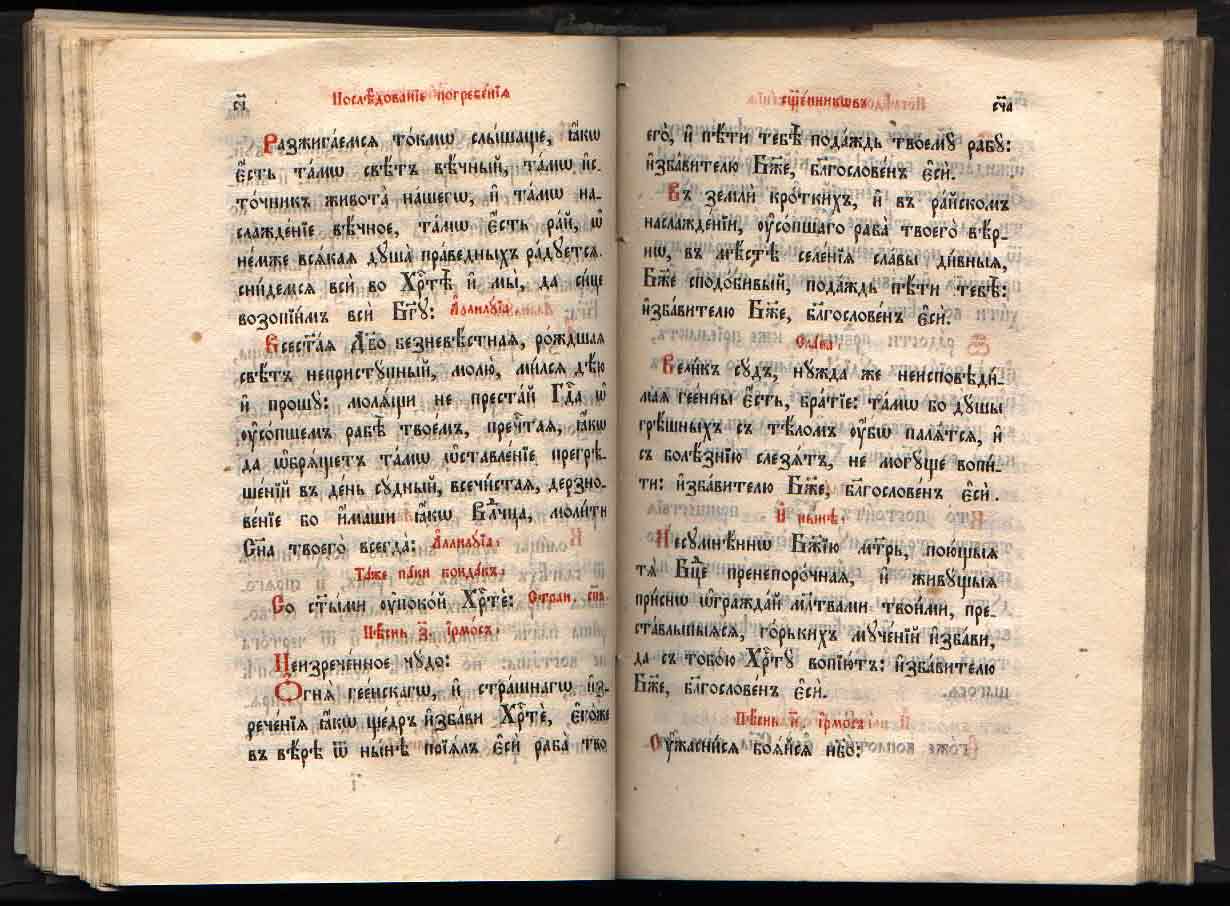 Послѣ́дованїе погребе́нїѧ
Разжига́емсѧ то́кмѡ слы́шаще, ꙗ҆́кѡ
є҆́сть та́мѡ свѣ́тъ вѣ́чный, та́мѡ и҆с-
то́чникъ живота̀ на́шегѡ, и҆ та́мѡ на-
слажде́нїе вѣ́чное, та́мѡ є҆́сть ра́й, ѡ҆
не́мже всѧ́каѧ дꙋша̀ пра́ведныхъ ра́дꙋетсѧ.
сни́демсѧ всѝ во Хрⷭ҇тѣ̀ и҆ мы̀, да си́це
возопїи́мъ всѝ Бг҃ꙋ: А҆ллилꙋ́їа.
Всест҃а́ѧ Дв҃о безневѣ́стнаѧ, ро́ждшаѧ
свѣ́тъ непристꙋ́пный, молю̀, ми́лсѧ дѣ́ю
и҆ прошꙋ̀: молѧ́щи не преста́й Гдⷭ҇а ѡ҆
ᲂу҆со́пшемъ рабѣ̀ твое́мъ, пречⷭ҇таѧ, ꙗ҆́кѡ
да ѡ҆брѧ́щетъ та́мѡ ѡ҆ставле́нїе прегрѣ-
ше́нїй въ де́нь сꙋ́дный, всечи́стаѧ, дерзно-
ве́нїе бо и҆́маши ꙗ҆́кѡ Влⷣчца, моли́ти
Сн҃а твоего̀ всегда̀: А҆ллилꙋ́їа:
Та́же па́ки конда́къ:
Со ст҃ы́ми ᲂу҆поко́й Хрⷭ҇тѐ: Стран. сп҃в.
Пѣ́снь з҃. і҆рмо́съ:
Неизрече́нное чꙋ́до:
Ѻ҆гнѧ̀ гее́нскагѡ, и҆ стра́шнагѡ и҆з-
рече́нїѧ ꙗ҆́кѡ ще́дръ и҆зба́ви Хрⷭ҇тѐ, є҆го́же
въ вѣ́рѣ ѿ ны́нѣ поѧ́лъ є҆сѝ раба̀ тво
сщ҃е́нникѡвъ
сч҃а
его̀, и҆ пѣ́ти тебѣ̀ пода́ждь твоемꙋ̀ рабꙋ̀:
и҆зба́вителю Бж҃е, блгⷭ҇ослове́нъ є҆сѝ.
Въ землѝ кро́ткихъ, и҆ въ ра́йскомъ
наслажде́нїи, ᲂу҆со́пшаго раба̀ твоего̀ вѣ́р-
нѡ, въ мѣ́стѣ селе́нїѧ сла́вы ди́вныѧ,
Бж҃е сподо́бивый, пода́ждь пѣ́ти тебѣ̀:
и҆зба́вителю Бж҃е, блгⷭ҇ослове́нъ є҆сѝ.
Сла́ва:
Вели́къ сꙋ́дъ, нꙋ́жда же неисповѣди́-
маѧ гее́нны є҆́сть, бра́тїе: та́мѡ бо дꙋ́шы
грѣ́шныхъ съ тѣ́ломъ ᲂу҆́бѡ палѧ́тсѧ, и҆
съ болѣ́знїю слезѧ́тъ, не могꙋ́ще вопи́-
ти: и҆зба́вителю Бж҃е, блгⷭ҇ослове́нъ є҆сѝ.
И҆ ны́нѣ:
Несꙋмнѣ́ннѡ Бж҃їю мт҃рь, пою́щыѧ
тѧ̀ Бц҃е пренепоро́чнаѧ, и҆ живꙋ́щыѧ
при́снѡ ѡ҆гражда́й мл҃твами твои́ми, пре-
ста́вльшыѧсѧ, го́рькихъ мꙋче́нїй и҆зба́ви,
да съ тобо́ю Хрⷭ҇тꙋ̀ вопїю́тъ: и҆зба́вителю
Бж҃е, блгⷭ҇ослове́нъ є҆сѝ.
Пѣ́снь и҃ і҆рмо́съ:
Оу҆жасни́сѧ боѧ́йсѧ нб҃о: